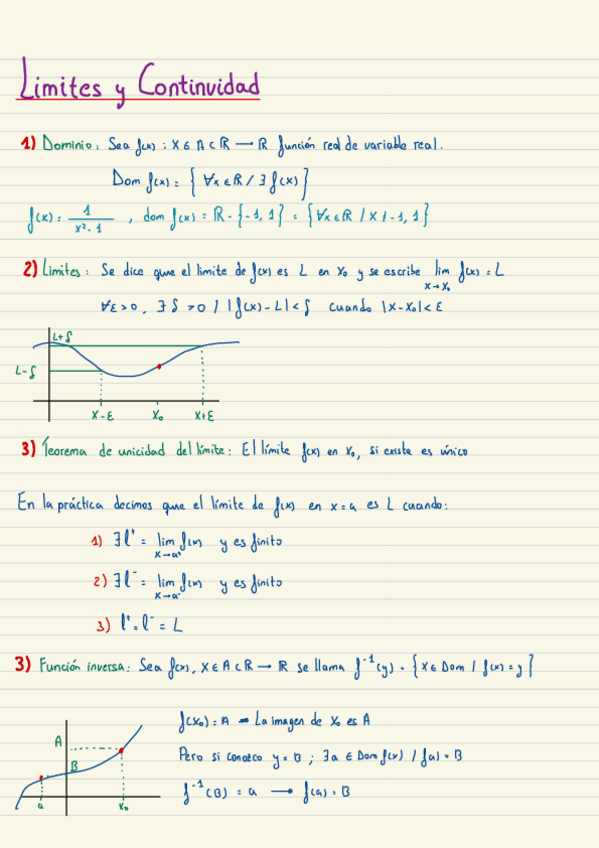 Límites y Continuidad
1) Dominio: Sea f(x) : X ∈ A ⊂ ℝ → ℝ función real de variable real.
Dom f(x) = { ∀x ∈ ℝ / ∃ f(x) }
f(x) = 1/(x²-1) , dom f(x) = ℝ - {-1, 1} = {∀x ∈ ℝ / x ≠ -1, 1}
2) Límites: Se dice que el límite de f(x) es L en X₀ y se escribe lim x→x₀ f(x) = L
∀ε > 0, ∃ δ > 0 / |f(x) - L| < δ cuando |x - x₀| < ε
L+δ
L-δ
X-ε X₀ X+ε
3) Teorema de unicidad del límite: El límite f(x) en x₀, si existe es único
En la práctica decimos que el límite de f(x) en x=a es L cuando:
1) ∃ l⁺ = lim x→a⁺ f(x) y es finito
2) ∃ l⁻ = lim x→a⁻ f(x) y es finito
3) l⁺ = l⁻ = L
3) Función inversa: Sea f(x), X ∈ A ⊂ ℝ → ℝ se llama f⁻¹(y) = { x ∈ Dom / f(x) = y }
f(x₀) = A → La imagen de x₀ es A
Pero si conozco y = B ; ∃a ∈ Dom f(x) / f(a) = B
f⁻¹(B) = a → f(a) = B
A
B
a X₀